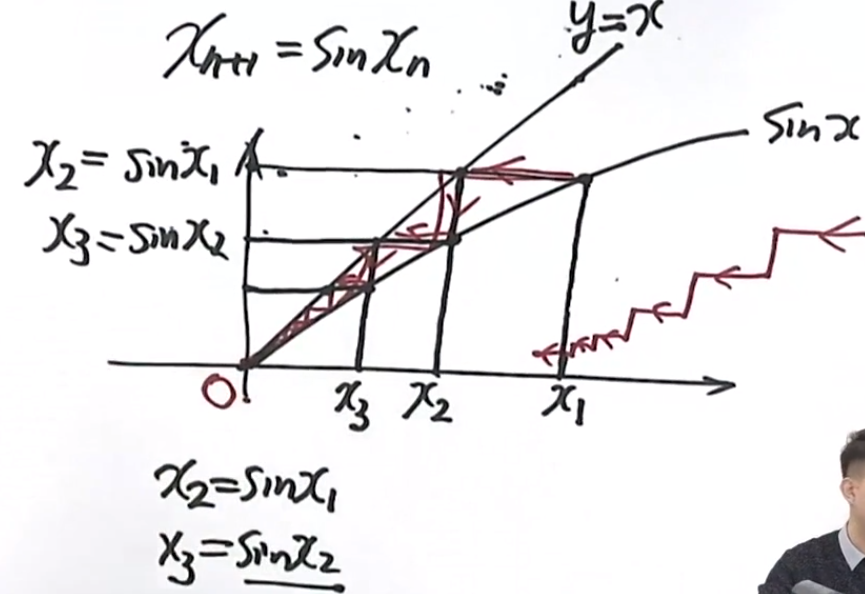 y=x
xₙ₊₁ = sin xₙ
sin x
x₂ = sin x₁
x₃ = sin x₂
O
x₃ x₂ x₁
x₂ = sin x₁
x₃ = sin x₂